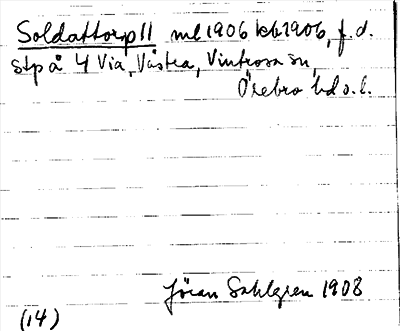 Soldattorp || ml 1906 kbl 1906, f.d.
stp å 4 Via, Västra, Vintrosa sn,
Örebro hd o. l.
Jöran Sahlgren 1908
(14)